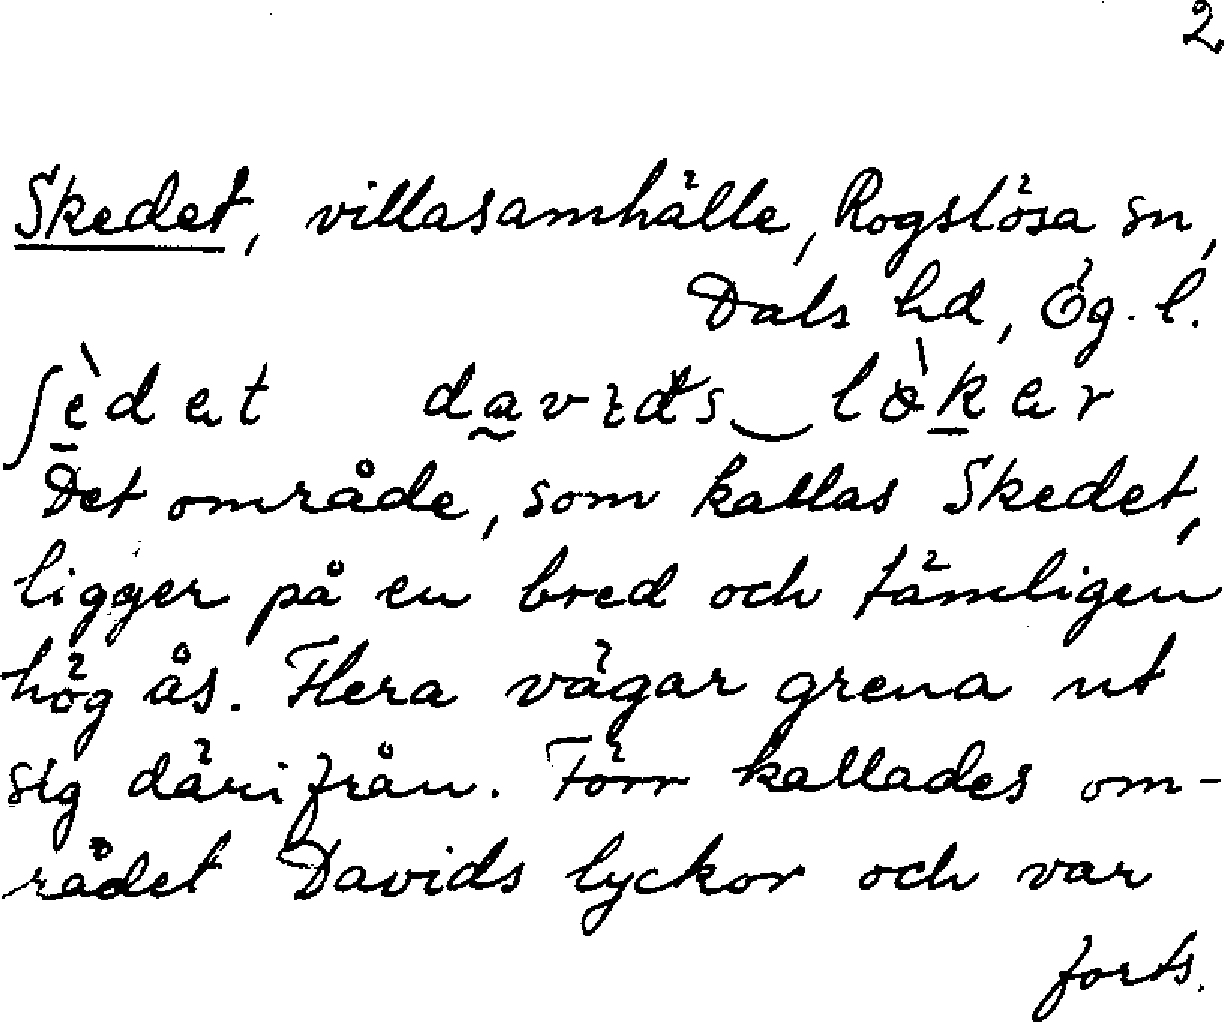 2
Skedet, villasamhälle, Rogslösa sn,
Dals hd, Ög. l.
ʃèdet davɪds‿lòker
Det område, som kallas Skedet,
ligger på en bred och tämligen
hög ås. Flera vägar grena ut
sig därifrån. Förr kallades om-
rådet Davids lyckor och var
forts.